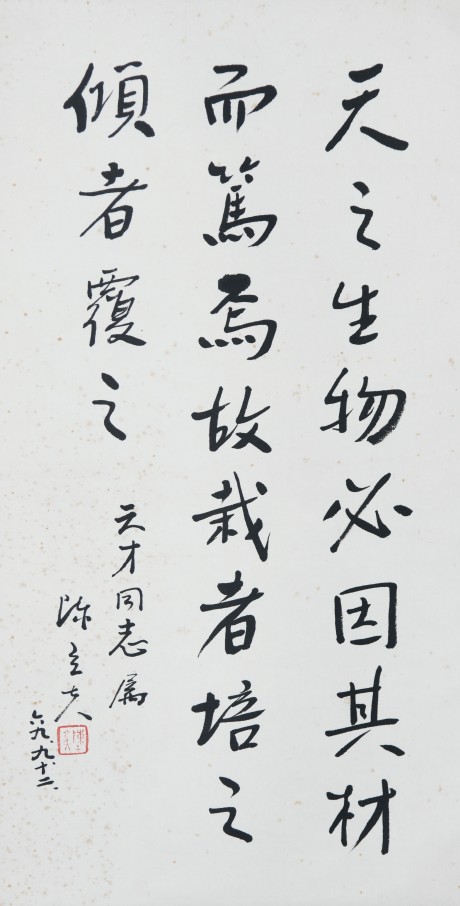 天之生物必因其材
而篤焉故栽者培之
傾者覆之
云才同志屬
陈立夫
六九、九、十二、